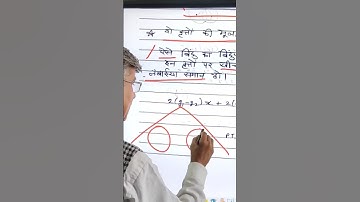 * दो वृत्तों की मूल
ऐसे बिंदु का बिंदु
इन वृत्तों पर खीं
लंबाइयां समान हों।
2(g₁-g₂)x + 2(
PT